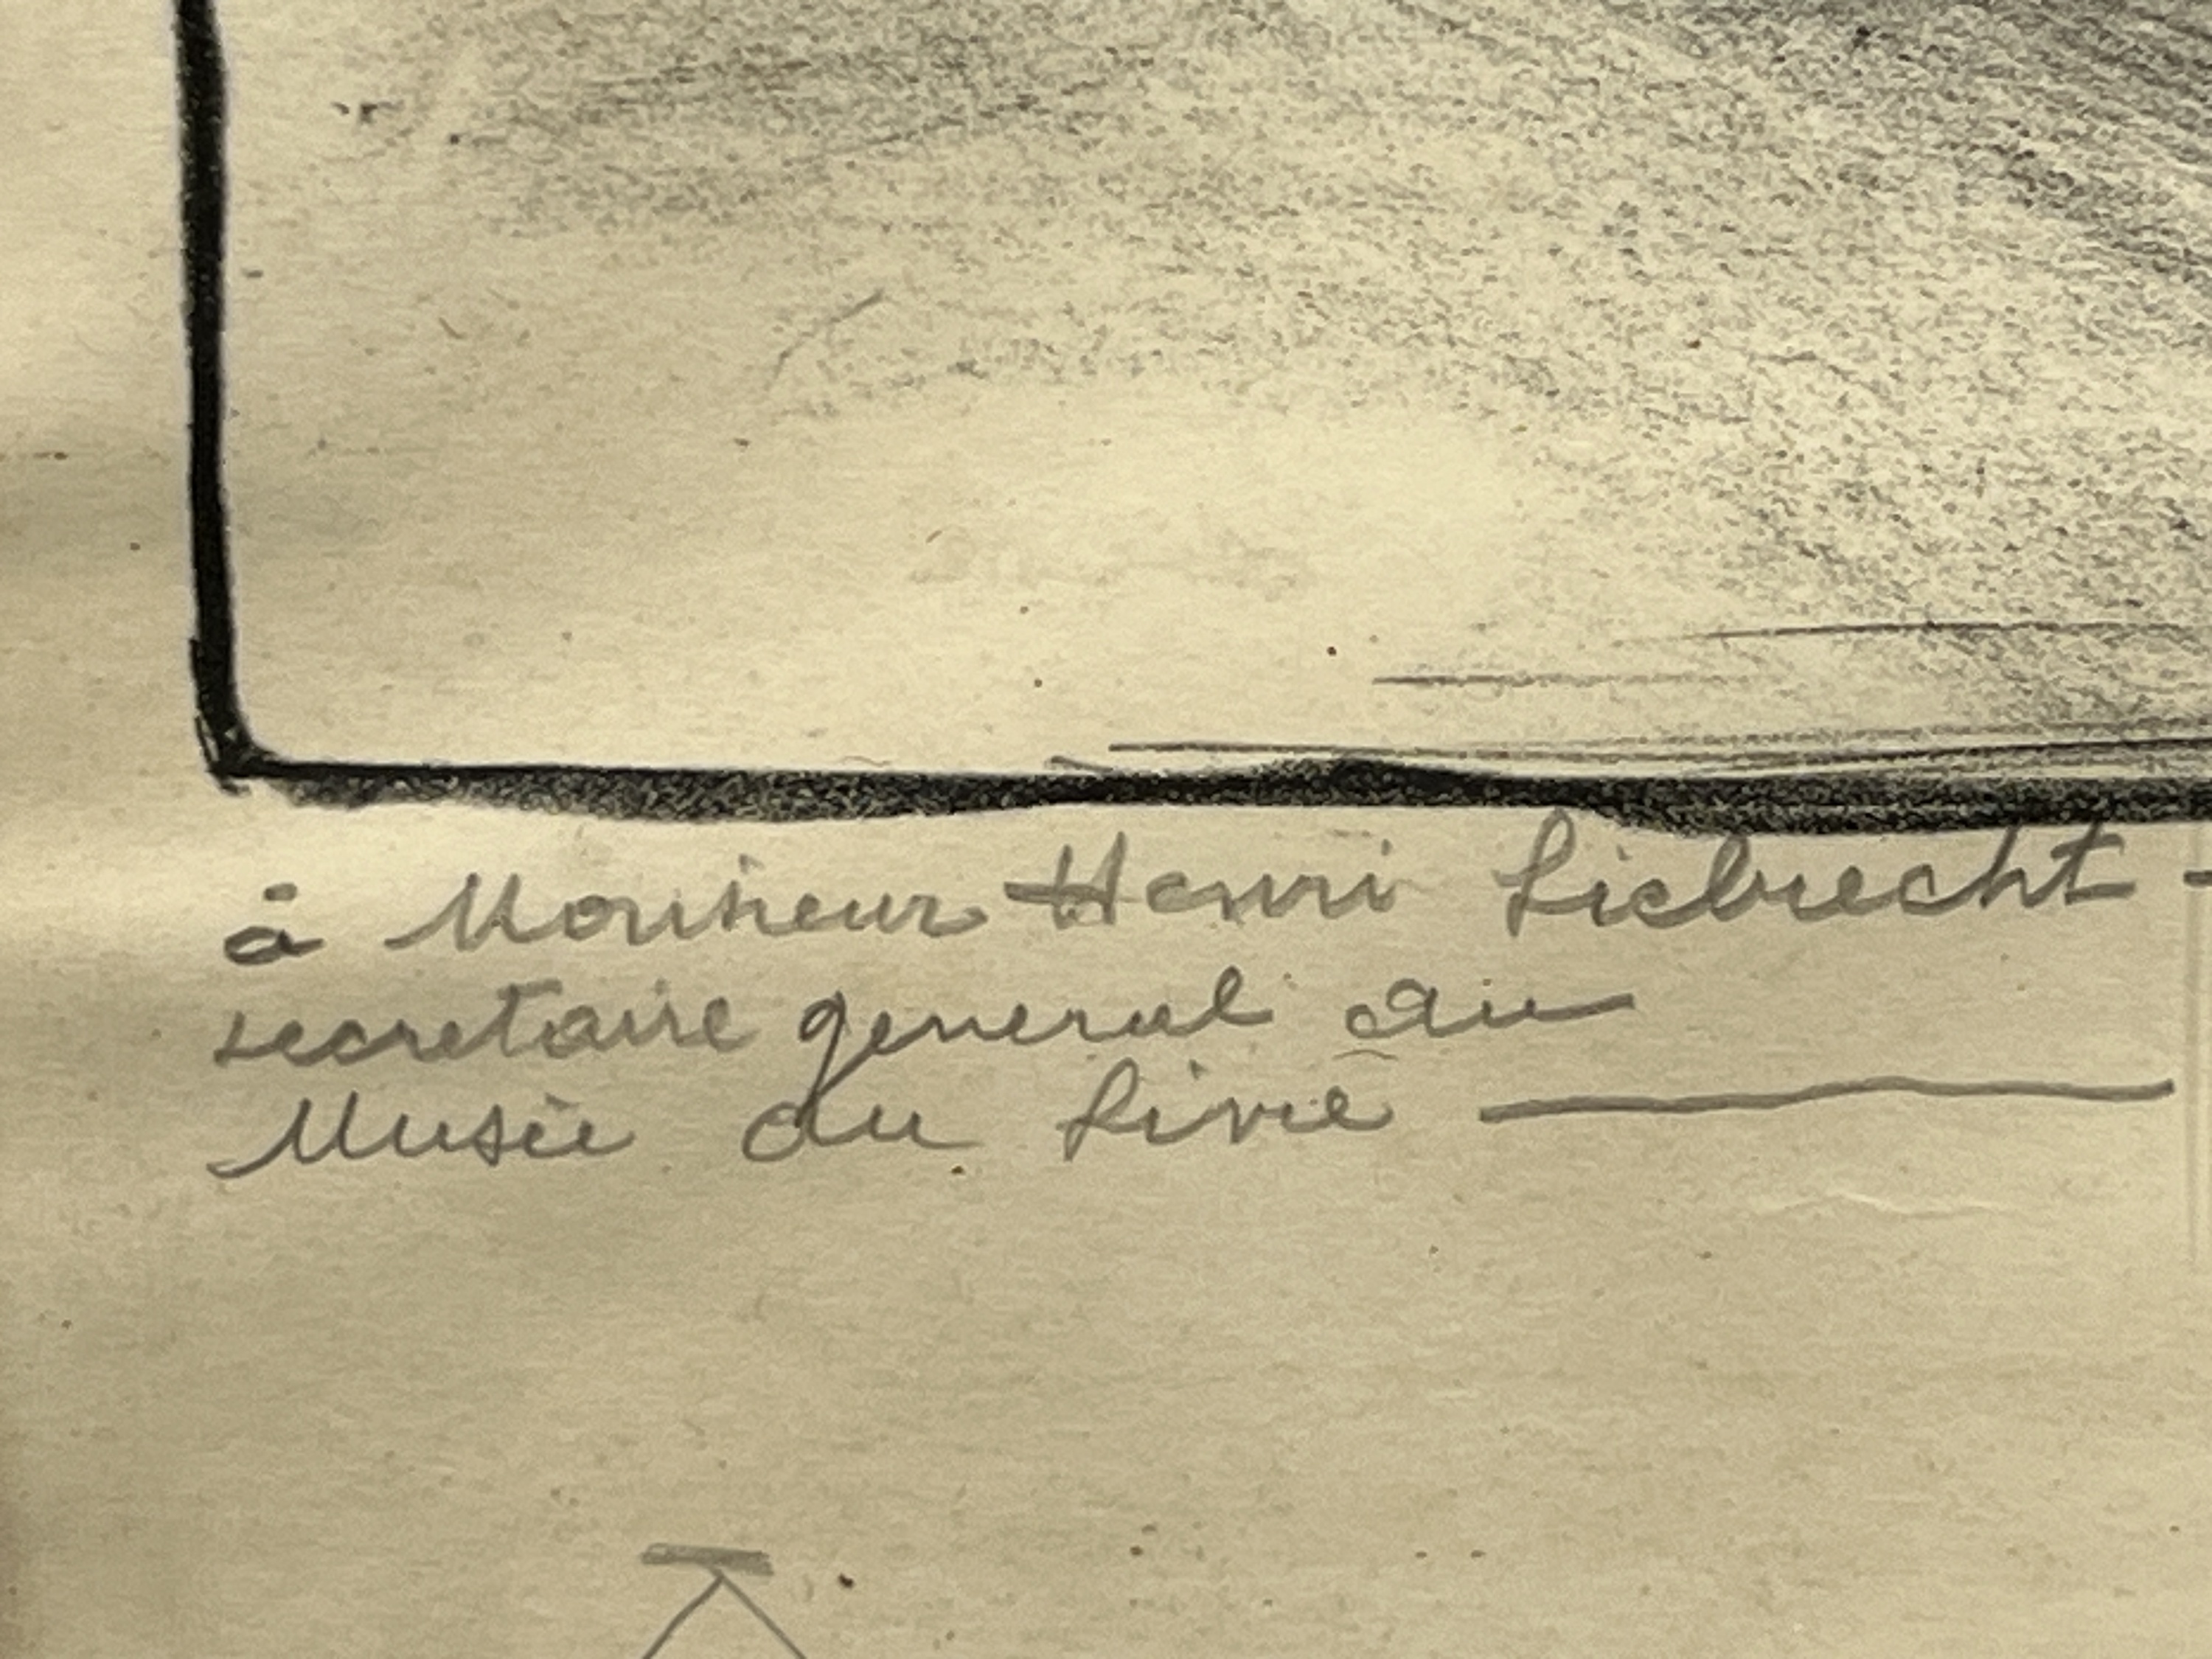 à Monsieur Henri Liebrecht -
secretaire general du
Musée du Livre —
K